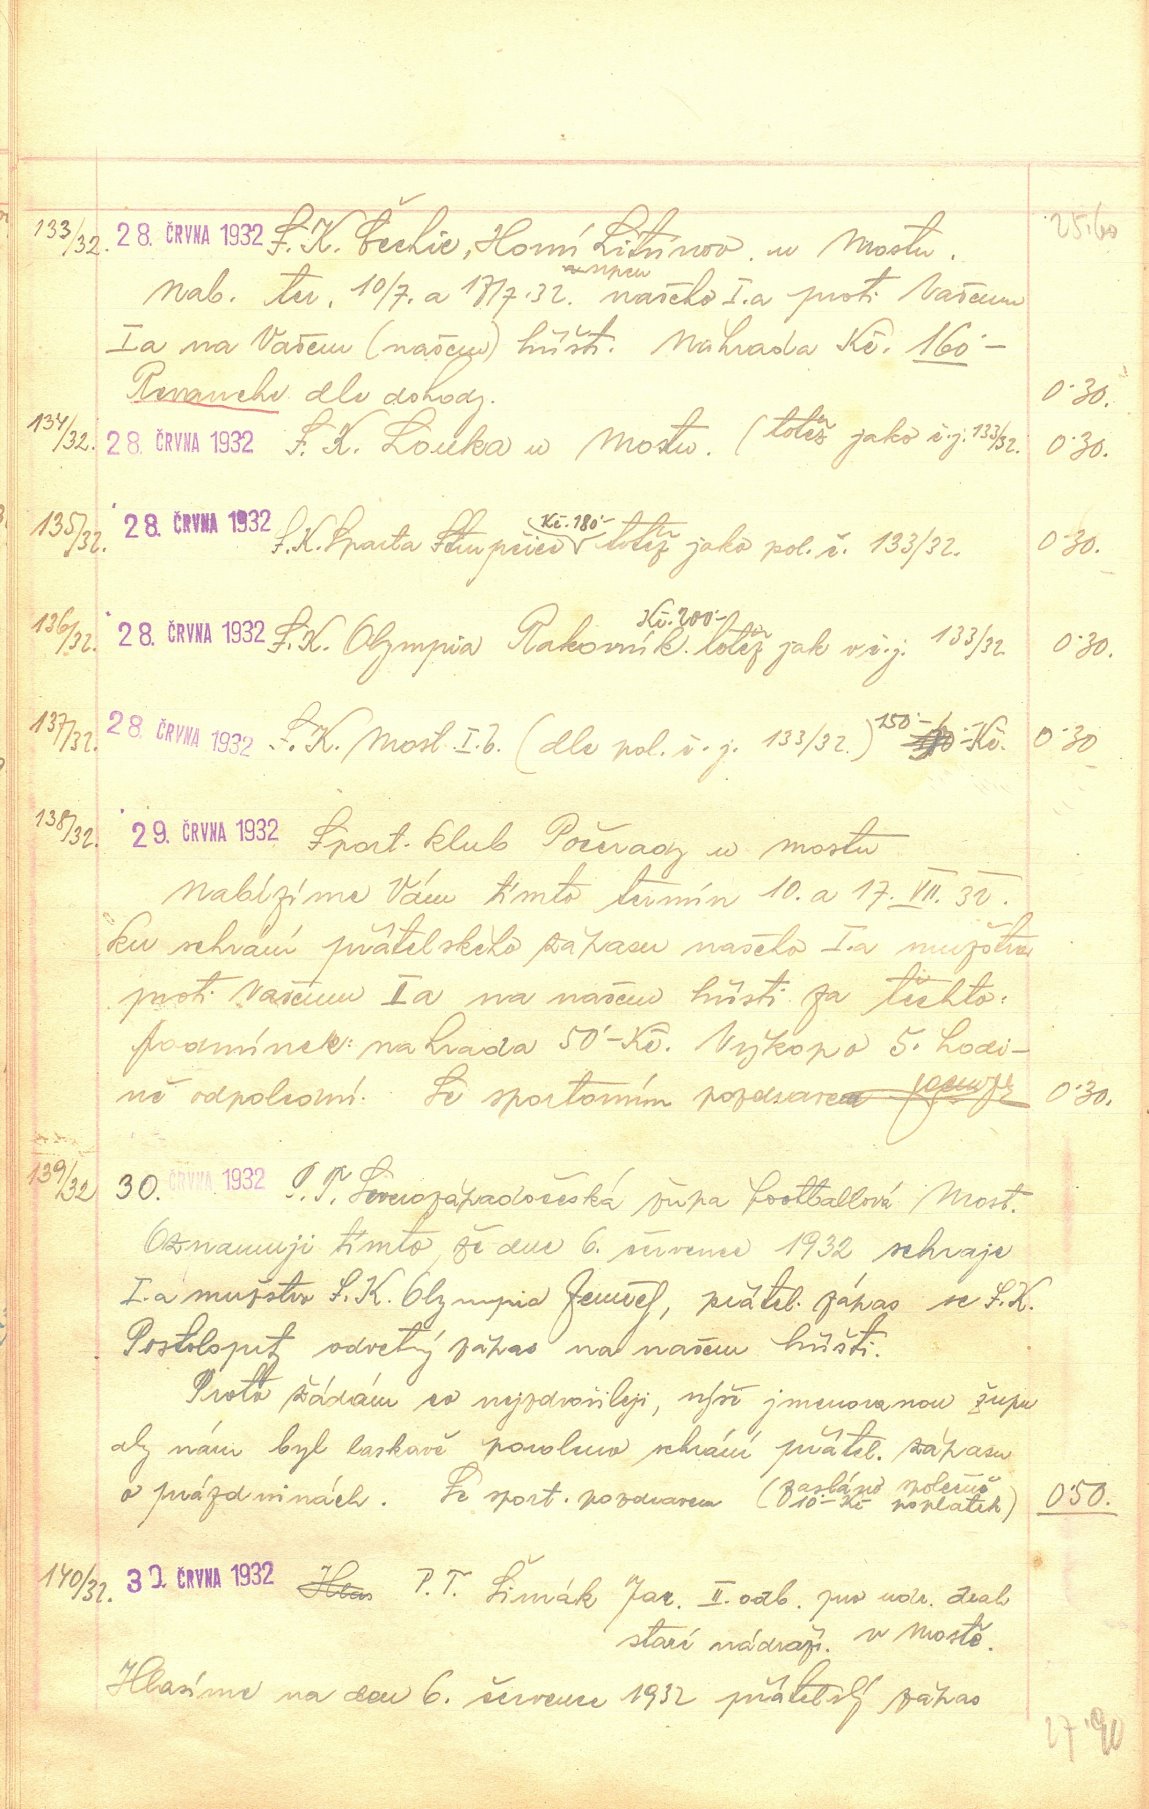 25.60
133/32. 28. ČRVNA 1932 S. K. Čechie, Horní Litvínov. u Mostu.
Nab. ter. 10/7. a 17/7.32. našeho I.a proti Vašemu
I a na Vašem (našem) hřišti. Náhrada Kč. 160·–
Revanche dle dohody. 0·30.
134/32. 28. ČRVNA 1932 S. K. Louka u Mostu. (totéž jako č.j. 133/32. 0·30.
Kč. 180·–
135/32. 28. ČRVNA 1932 S.K. Sparta Strupčice totéž jako pol. č. 133/32. 0·30.
Kč. 200·–
136/32. 28. ČRVNA 1932 S.K. Olympia Rakovník. totéž jak v č.j. 133/32 0·30.
137/32. 28. ČRVNA 1932 S. K. Most I.b. (dle pol. č. j. 133/32.) 150·– Kč. 0·30
138/32. 29. ČRVNA 1932 Sport. klub Počerady u Mostu
Nabízíme Vám tímto termín 10. a 17. VII. 32.
ku sehrání přátelského zápasu našeho I.a mužstva
proti Vašemu II a na našem hřišti za těchto
podmínek: náhrada 50·– Kč. Výkop o 5. hodi–
ně odpolední. Se sportovním pozdravem 0·30.
139/32 30. ČRVNA 1932 P. T. Severozápadočeská župa footballová Most.
Oznamuji tímto, že dne 6. července 1932 sehraje
I.a mužstvo S. K. Olympia Zeměch, přátel. zápas se S.K.
Postoloprty odvetný zápas na našem hřišti.
Proto žádám co nejzdvořileji, výše jmenovanou župu
aby nám byl laskavě povoleno sehrání přátel. zápasu
o prázdninách. Se sport. pozdravem (zasláno společně
10·– Kč poplatek) 0·50.
140/32. 30. ČRVNA 1932 Hlas P. T. Šimák Jar. II. odb. pro udr. drah
staré nádraží. v Mostě.
Hlasíme na den 6. července 1932 přátelský zápas
27·90